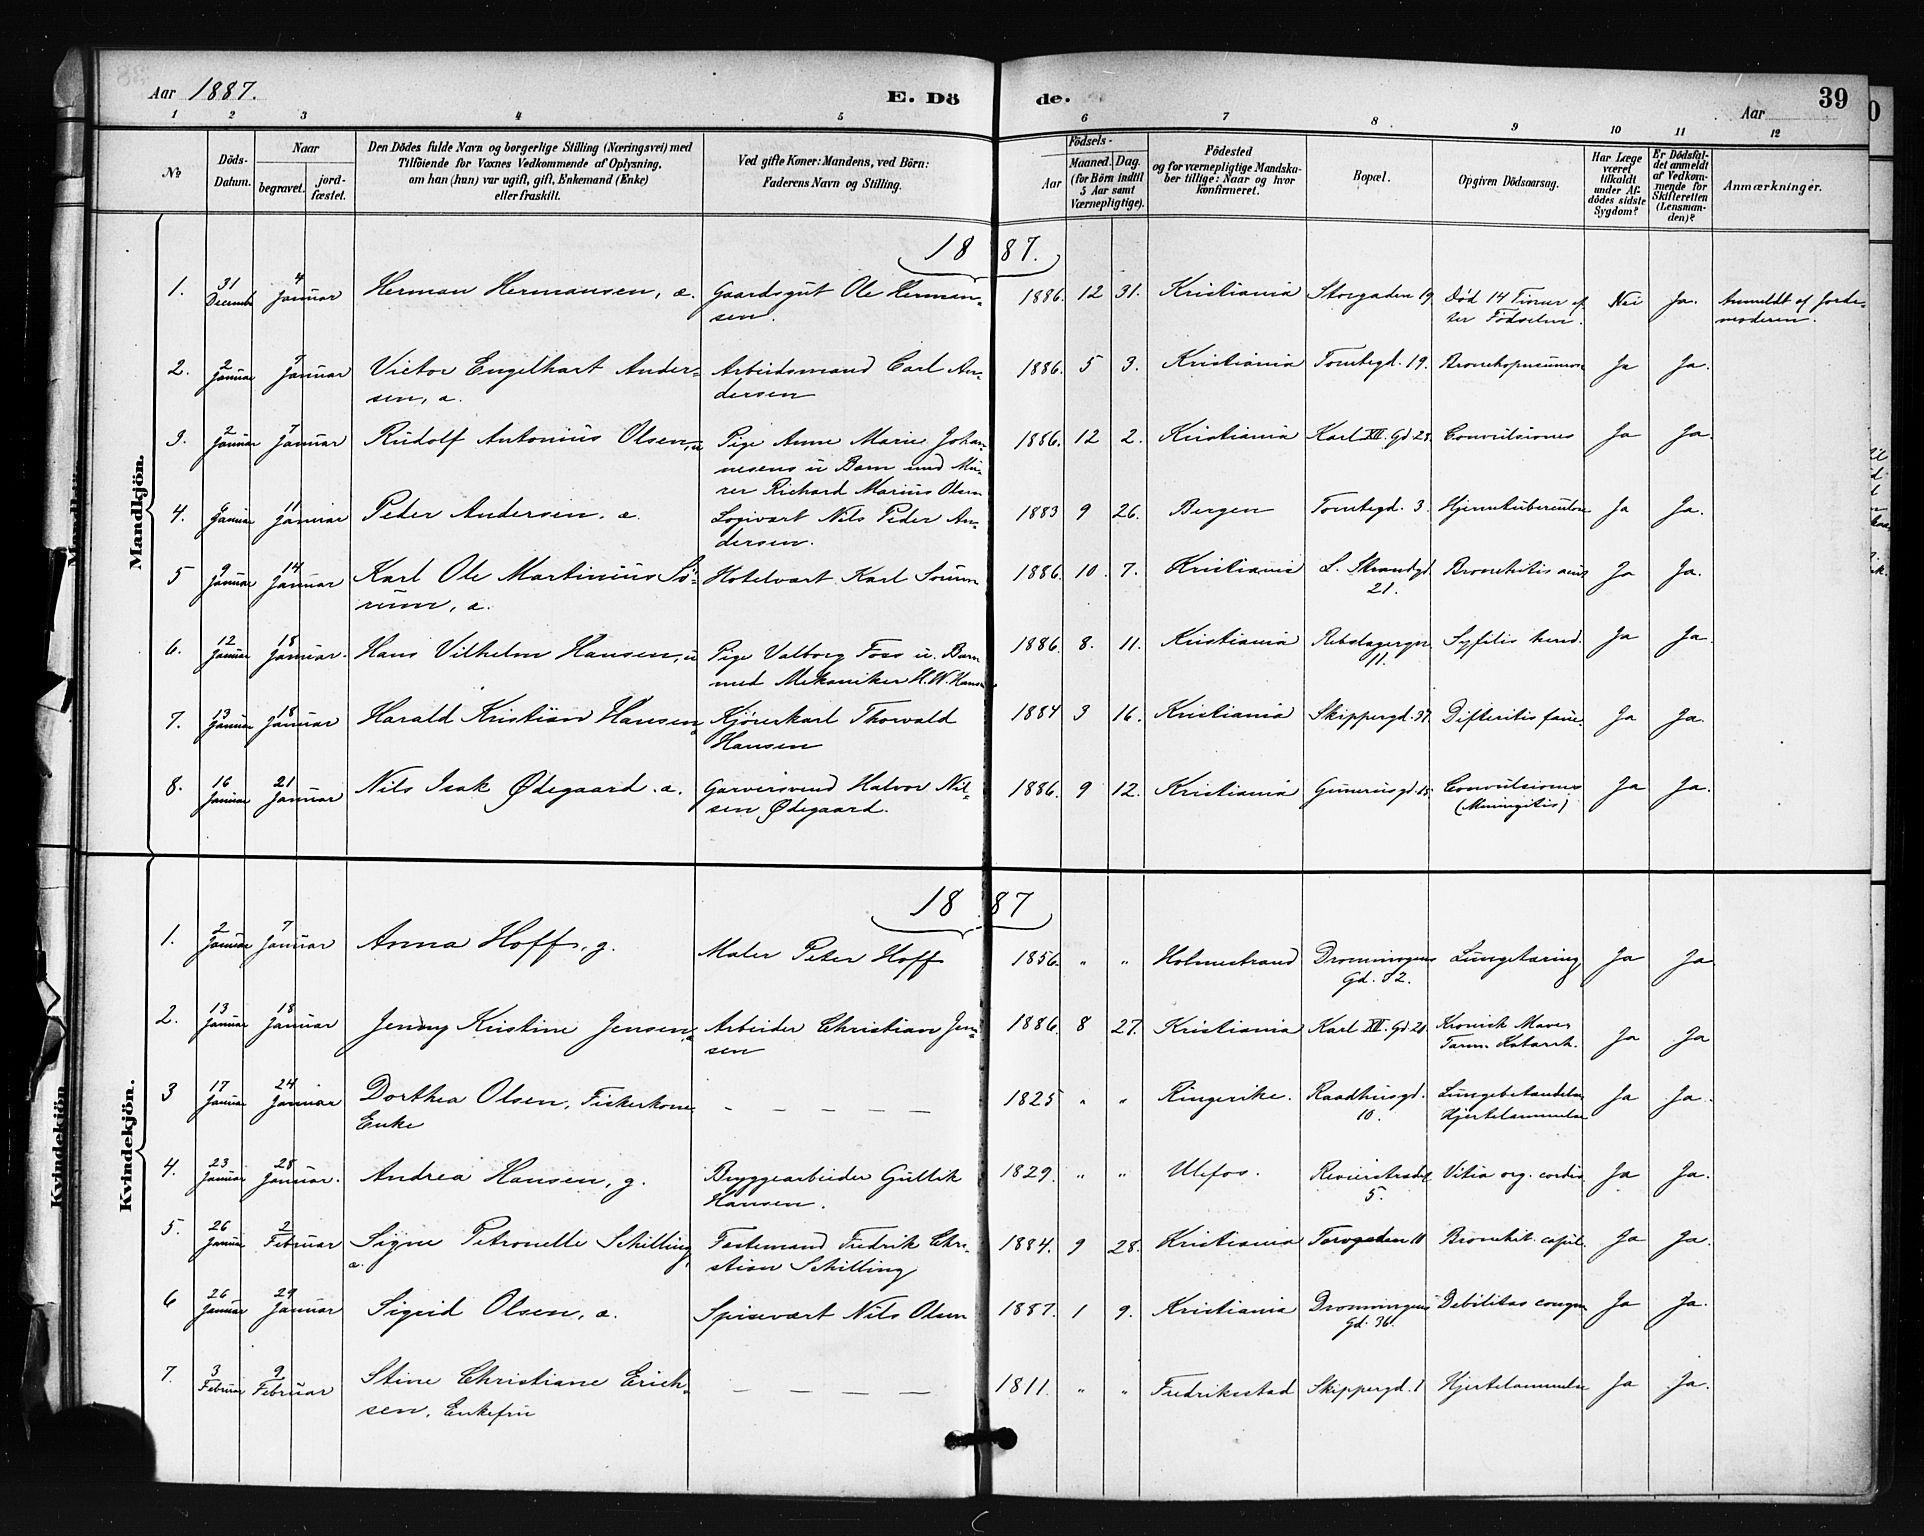 Aar 1887.
E. Dö de.
Aar
39
1 2 3 4 5 6 7 8 9 10 11 12
No
Döds-Datum.
Naar
begravet.
jord-fæstet.
Den Dödes fulde Navn og borgerlige Stilling (Næringsvei) med
Tilföiende for Voxnes Vedkommende af Oplysning,
om han (hun) var ugift, gift, Enkemand (Enke)
eller fraskilt.
Ved gifte Koner: Mandens, ved Börn:
Faderens Navn og Stilling.
Födsels-
Aar
Maaned. Dag.
(for Börn indtil
5 Aar samt
Værnepligtige).
Födested
og for værnepligtige Mandska-
ber tillige: Naar og hvor
konfirmeret.
Bopæl.
Opgiven Dödsaarsag.
Har Læge
været
tilkaldt
under Af-
dödes sidste
Sygdom?
Er Dödsfal-
det anmeldt
af Vedkom-
mende for
Skifteretten
(Lensman-
den)?
Anmærkninger.
Mandkjön.
1887.
1. 31 December 4 Januar Herman Hermansen, æ. Gaardsgut Ole Herman- 1886. 12 31. Kristiania Storgaden 19 Död 14 Timer ef- Nei Ja. Anmeldt af Jorde-
sen. ter Födselen. moderen.
2. 2 Januar 7 Januar Victor Engelhart Ander- Arbeidsmand Carl An- 1886. 5 3. Kristiania Tomtegd. 19. Bronchopneumoni Ja Ja.
sen, æ. dersen
3. 2 Januar 7 Januar Rudolf Antonius Olsen, u Pige Anne Marie Johan- 1886. 12 2. Kristiania Karl XII. Gd 28. Convulsiones Ja Ja.
nesens u Barn med Mu-
rer Richard Marius Olsen
4. Januar 11 Januar Peder Andersen. æ. Logivært Nils Peder An- 1883 9 26. Bergen Tomtegd. 3. Hjernetuberculose Ja Ja.
dersen.
5 9 Januar 14 Januar Karl Ole Martinius Sö- Hotelvært Karl Sörum 1886. 10. 7. Kristiania L. Strandgd. Bronchitis acut Ja Ja.
rum, æ. 21.
6. 12 Januar 18 Januar. Hans Vilhelm Hansen, u Pige Valborg Foss u. Barn 1886. 8. 11. Kristiania Rebslagergn Syfilis hered. Ja Ja.
med Mekaniker H. W. Hansen 11.
7. 13 Januar 18 Januar Harald Kristian Hansen Kjörerkarl Thorvald 1884 3 16. Kristiania Skippergd. 37. Difteritis fauc. Ja Ja.
Hansen
8. 16 Januar 21 Januar Nils Isak Ødegaard. æ. Garversvend Halvor Nil- 1886. 9 12. Kristiania Gunerusgd. 15 Convulsiones Ja Ja.
sen Ødegaard. (Meningitis)
Kvindekjön.
1887
1. 2 Januar 7 Januar Anna Hoff, g. Maler Peter Hoff 1856. " " Holmestrand Dronningens Lungetæring Ja Ja
Gd. 32.
2. 13 Januar 18 Januar Jenny Kristine Jensen Arbeider Christian Jen- 1886. 8 27. Kristiania Karl XII. Gd 28 Kronisk Mave- Ja Ja
sen Tarm-Katarrh.
3 17 Januar 24 Januar Dorthea Olsen, Fiskerkone – – – – – 1825 " " Ringerike. Raadhusgd. Lungebetændelse Ja Ja.
Enke 10. Hjertelammelse
4. 23 Januar 28 Januar. Andrea Hansen, g. Bryggearbeider Gullik 1829. " " Ulefos. Revierstrædet Vitia org. cordis Ja Ja.
Hansen. 5.
5. 26 Januar 2 Februar Signe Petronelle Schilling, Fostemand Fredrik Chri- 1884. 9 28. Kristiania Torvgaden 11 Bronchit. capil. Ja Ja.
æ. stian Schilling
6 26 Januar 29 Januar Sigrid Olsen, æ. Spisevært Nils Olsen 1887. 1 9. Kristiania Dronningens Debilitas congen Ja Ja.
Gd. 36.
7. 3 Februar 9 Februar Stine Christiane Erich- – – – – 1811. " " Fredriksstad Skippergd. 1 Hjertelammelse Ja Ja.
sen, Enkefru
Mandkjön.
Kvindekjön